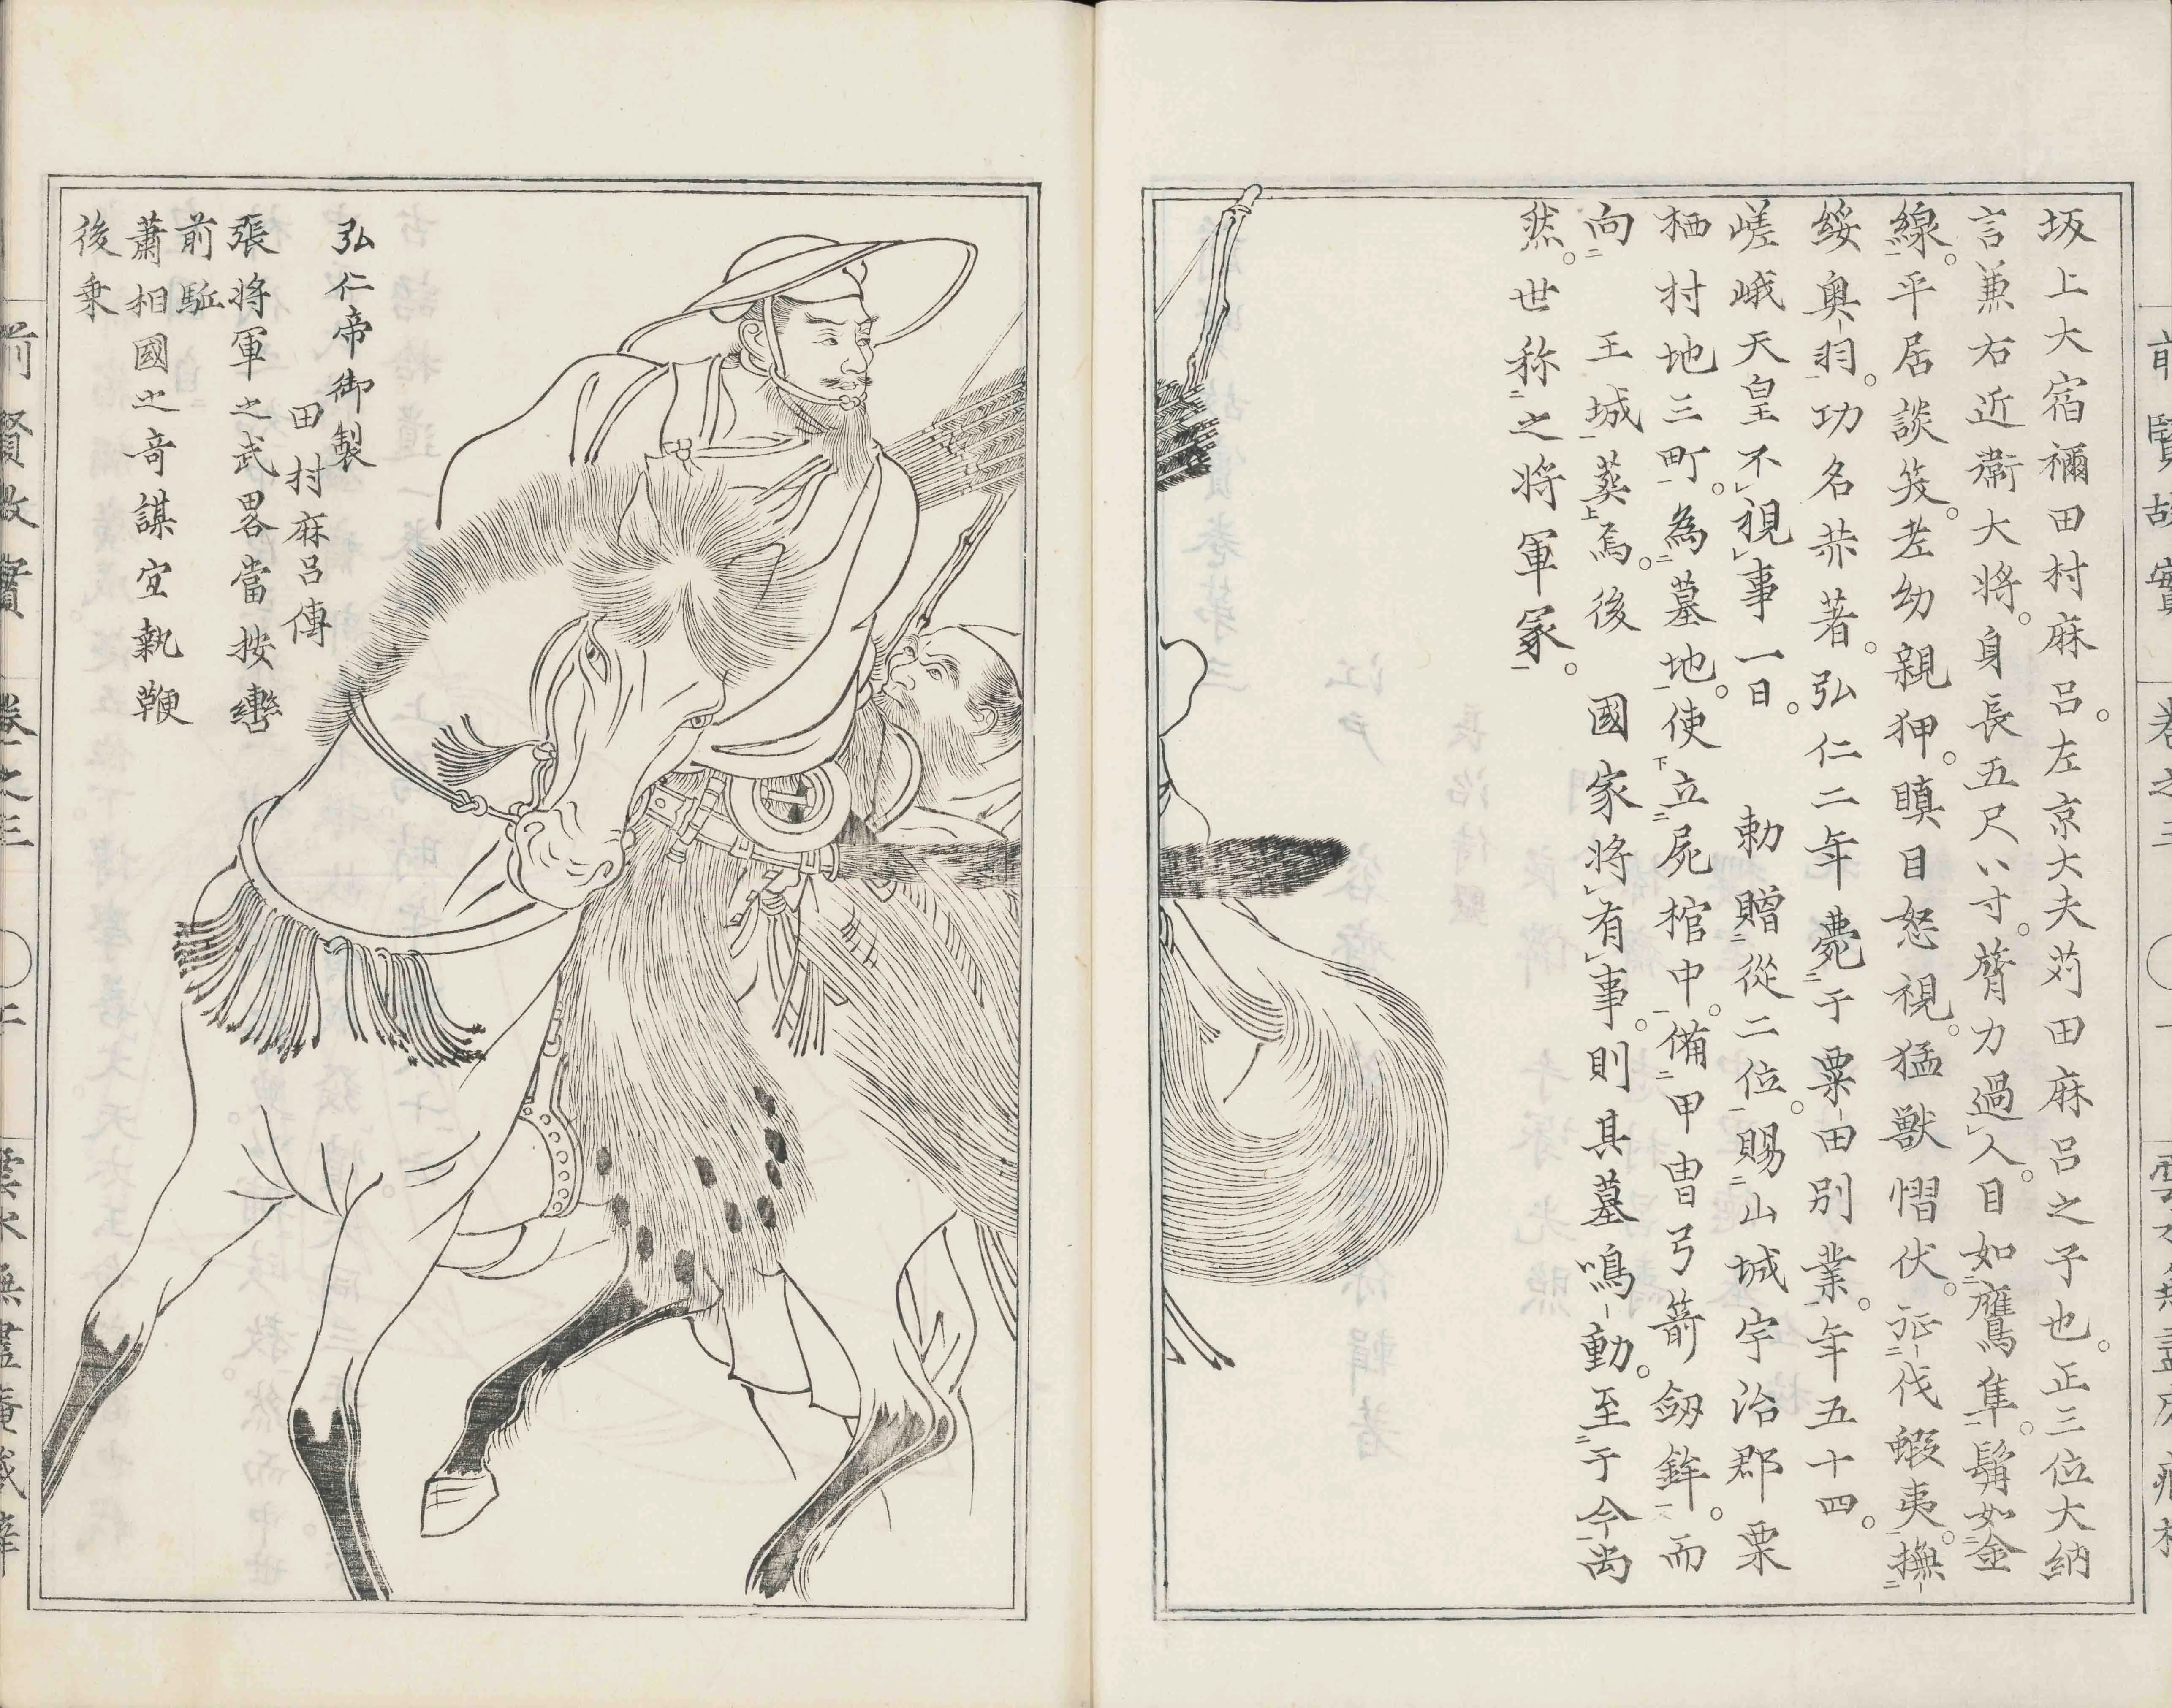 坂上大宿禰田村麻呂。左京大夫苅田麻呂之子也。正三位大納
言兼右近衛大将。身長五尺八寸。膂力過人。目如鷹隼。鬚如金
線。平居談笑。老幼親狎。瞋目怒視。猛獣慴伏。征伐蝦夷。撫
綏奥羽。功名茶著。弘仁二年薨于粟田別業。年五十四。
嵯峨天皇不視事一日。 勅贈從二位。賜山城宇治郡栗
栖村地三町。為墓地。使立屍棺中。備甲冑弓箭劔鉾。而
向 王城葬焉。後 國家将有事。則其墓鳴動。至于今尚
然。世称之将軍冢。
弘仁帝御製
田村麻呂傳
張将軍之武畧當按轡
前駈
蕭相國之奇謀宜執鞭
後乗
前賢故實 卷之三